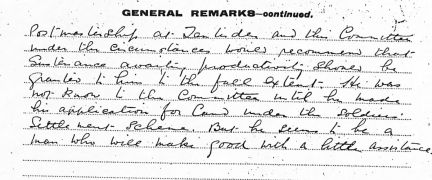 GENERAL REMARKS—continued.
Postmastership at Tenterden and this Committee
under the circumstances would recommend that
Sustenance awaiting productivity should be
granted to him to the full extent. He was
not known to the Committee until he made
his application for Land under the Soldiers'
Settlement Scheme. But he seems to be a
man who will make good with a little assistance.